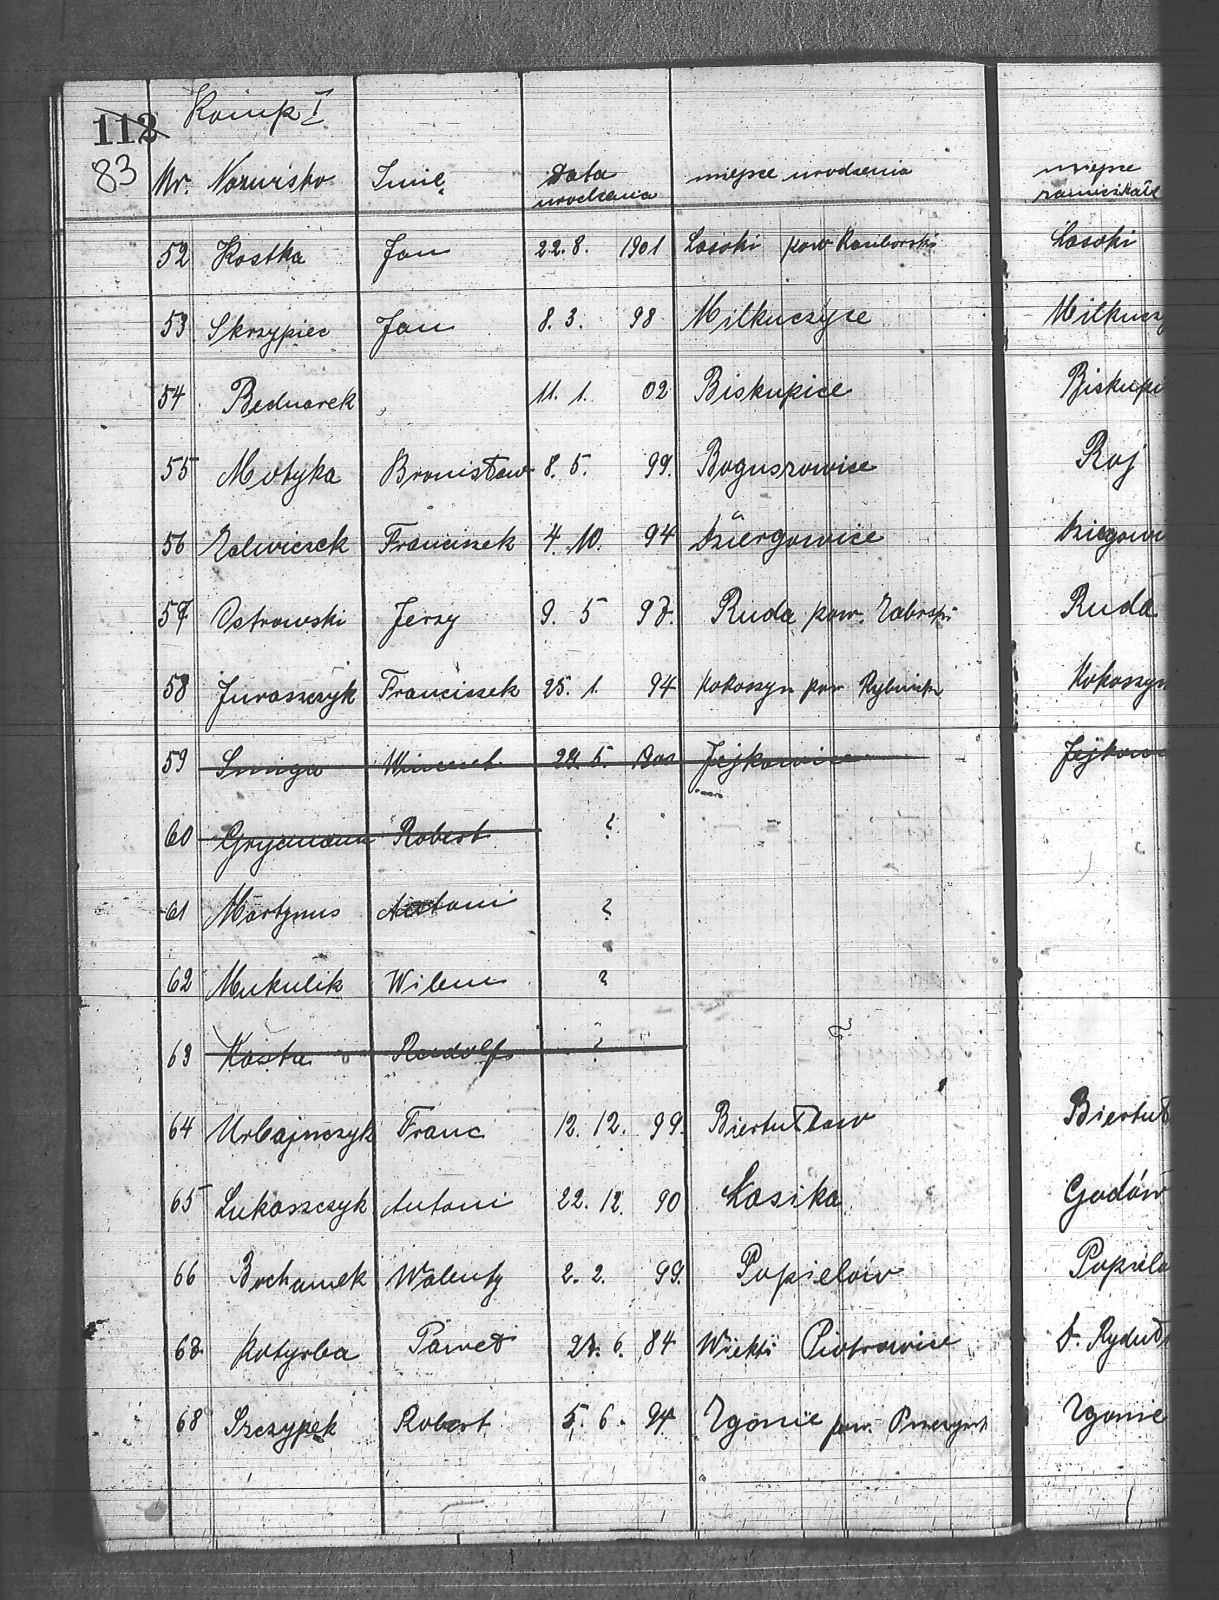 112 Komp I
83 Nr. Nazwisko Imię Data urodzenia miejsce urodzenia miejsce
52 Kostka Jan 22. 8. 1901 Łasoki pow Raciborski Łasoki
53 Skrzypiec Jan 8. 3. 98 Milkuczyce Milkucz
54 Bednarek 11. 1. 02 Biskupice Biskupi
55 Motyka Bronisław 8. 5. 99. Boguszowice Roj
56 Franciszek 4. 10. 94 Dziergowice
57 Ostrowski Jerzy 9. 5 97. Ruda pow. Zabrski Ruda
58 Juraszczyk Franciszek 25. 1. 94 Kokoszyn pow Rybnicki Kokoszyn
59 Smiga Wincent 22. 5. Jejkowice Jejkow
60 Grycmann Robert ?
61 Martynus Antoni ?
62 Mukulik Wilem ?
63 Kosta Rudolf ?
64 Urbajnczyk Franc 12. 12. 99. Biertułtow Biertuł
65 Lukaszczyk Antoni 22. 12. 90 Łasika Godów
66 Bochamek Walenty 2. 2. 99. Popielów Popielo
67 Kotyrba Paweł 27. 6. 84 Piotrowice
68 Szczypek Robert 5. 6. 94. Zgonie pow. Zgonie